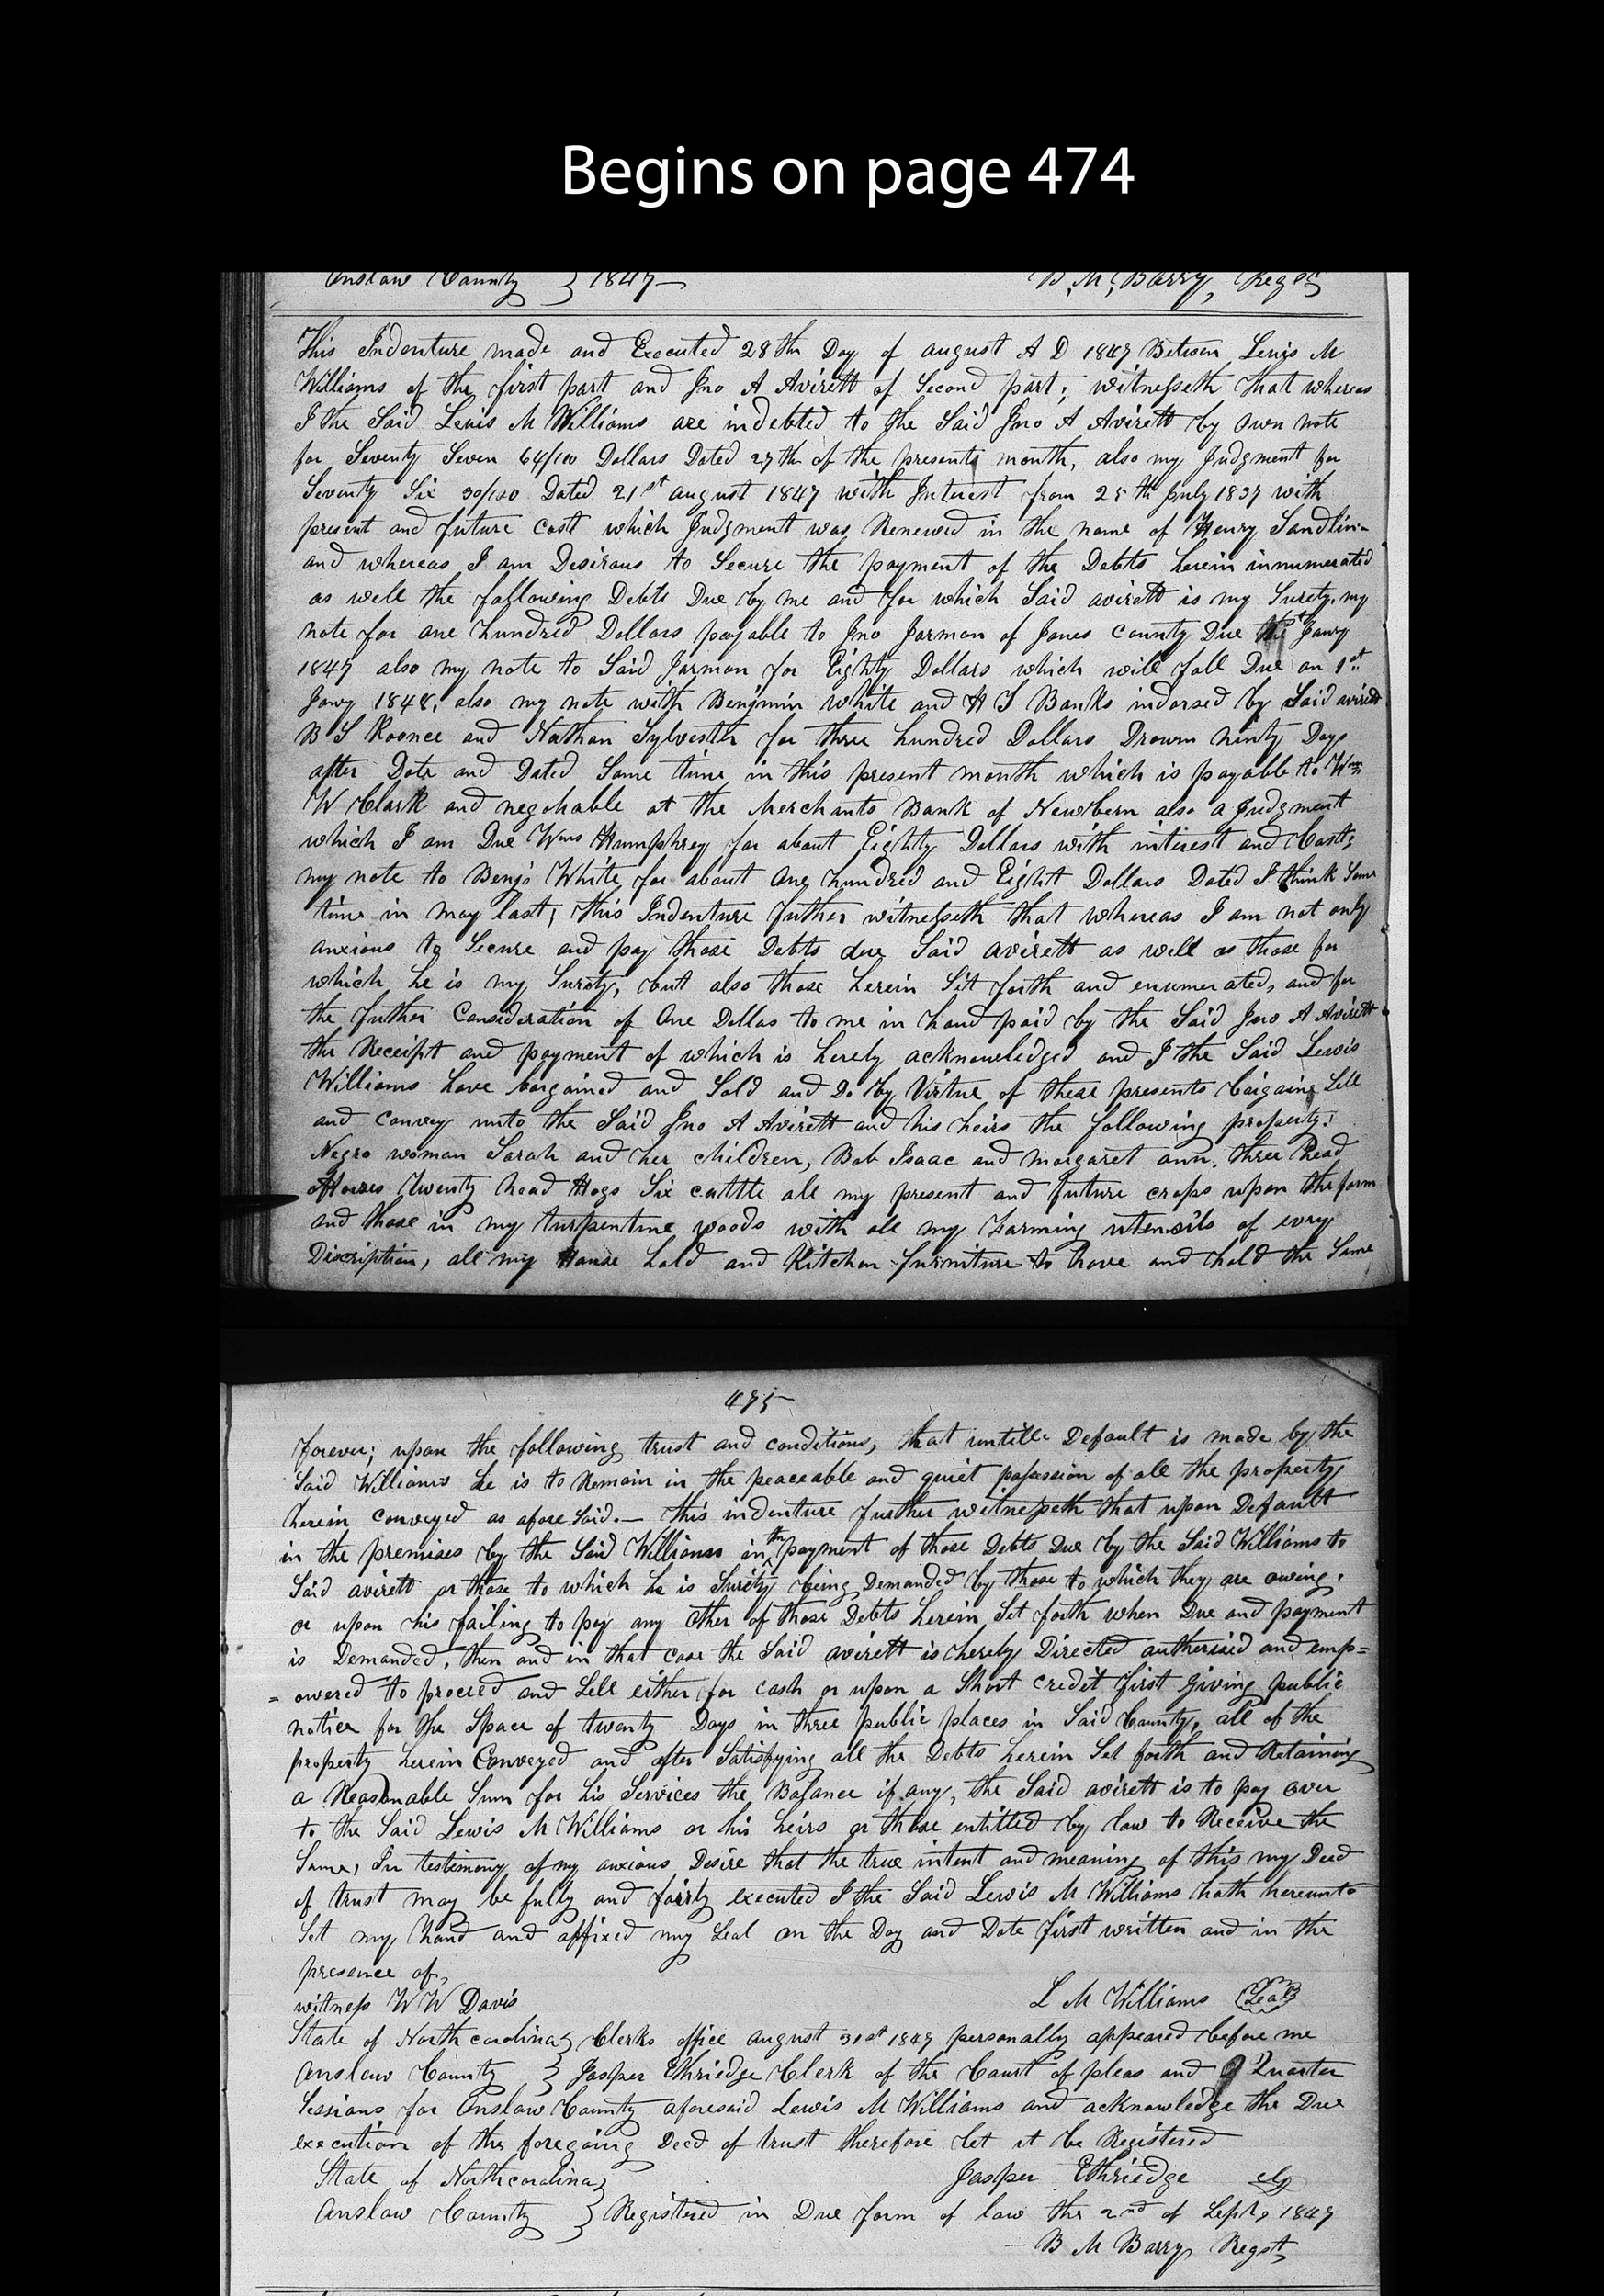 Begins on page 474
Onslow County } 1847 — B. M. Barry, Regst
This Indenture made and Executed 28th Day of august A D 1847 Between Lewis M
Williams of the first part and Jno A Avirett of Second part; witnesseth that whereas
I the Said Lewis M Williams are indebted to the Said Jno A Avirett by own note
for Seventy Seven 64/100 Dollars Dated 27th of the present month, also my Judgment for
Seventy Six 30/100 Dated 21st august 1847 with Interest from 25th July 1837 with
present and future cost which Judgment was Renewed in the name of Henry Sandlin-
and whereas I am Desirous to Secure the payment of the Debts herein innumerated
as well the following Debts Due by me and for which Said avirett is my Surety, my
note for one hundred Dollars payable to Jno Jarman of Jones County Due Jany
1847 also my note to Said Jarman for Eighty Dollars which will fall Due on 1st
Jany 1848, also my note with Benjmin White and H S Banks indorsed by Said avirett
B S Koonce and Nathan Sylvester for three hundred Dollars Drawn ninty Days
after Date and Dated Some time in this present month which is payable to Wm
W Clark and negotiable at the Merchants Bank of Newbern also a Judgment
which I am Due Wms Humphrey for about Eighty Dollars with interest and Cost;
my note to Benj. White for about one hundred and Eight Dollars Dated I think Some
time in may last; this Indenture futher witnesseth that whereas I am not only
anxious to Secure and pay those Debts due Said avirett as well as those for
which he is my Surety, but also those herein Sit forth and enumerated, and for
the futher Consideration of One Dollar to me in hand paid by the Said Jno A Avirett
the Receipt and payment of which is herely acknowledged and I the Said Lewis
Williams have bargained and Sold and Do by Virtue of these presents bargain Sell
and convey unto the Said Jno A Avirett and his heirs the following property:
Negro woman Sarah and her children, Bob Isaac and margaret ann, three head
Horses Twenty head Hogs Six cattle all my present and future crops upon the farm
and those in my turpentine woods with all my Farming utensils of every
Discription, all my House hold and Kitchen furniture to have and hold the Same
475
forever; upon the following trust and conditions, that untill Default is made by the
Said Williams he is to Remain in the peaceable and quiet possession of all the property
herein conveyed as afore Said.— this indenture further witnesseth that upon Default
in the premises by the Said Williams in the payment of those Debts Due by the Said Williams to
Said avirett or those to which he is Surity being Demanded by those to which they are owing.
or upon his failing to pay any other of those Debts herein Set forth when Due and payment
is Demanded, then and in that case the Said avirett is hereby Directed autherised and emp=
= owered to proceed and Sell either for cash or upon a Short credit first giving public
notice for the Space of twenty Days in three public places in Said County, all of the
property herein Conveyed and after Satisfying all the Debts herein Set forth and Retaining
a Reasonable Sum for his Services the Balance if any, the Said avirett is to pay over
to the Said Lewis M Williams or his heirs or those entitled by law to Receive the
Same, In testimony of my anxious Desire that the true intent and meaning of this my Deed
of trust may be fully and fairly executed I the Said Lewis M Williams hath hereunto
Set my hand and affixed my Seal on the Day and Date first written and in the
presence of,
witness W W Davis L M Williams Seal
State of North carolina } Clerks office august 31st 1847 personally appeared before me
Onslow County } Jasper Ethriedge Clerk of the Court of pleas and Quarter
Sessions for Onslow County aforesaid Lewis M Williams and acknowledge the Due
execution of the foregoing Deed of trust therefore let it be Registered
State of North carolina } Jasper Ethriedge clk
Onslow County } Registered in Due form of law the 2nd of Sept, 1847
B M Barry Regst